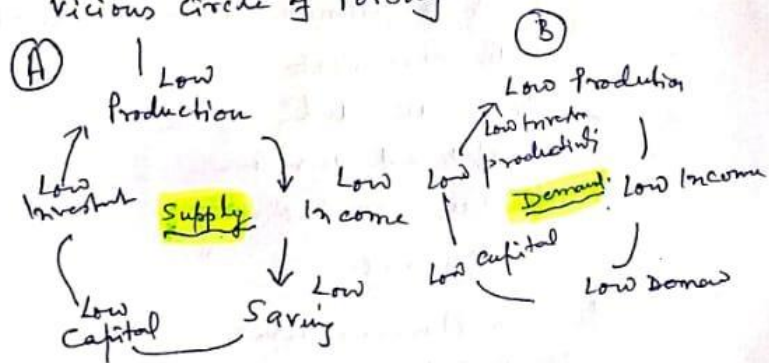 Vicious Circle of
A
Low
Production
Low
Income
Low
Saving
Low
Capital
Low
Investment
Supply
B
Low Prodution
Low Income
Low Deman
Low Capital
Low
Low
productivity
Demand